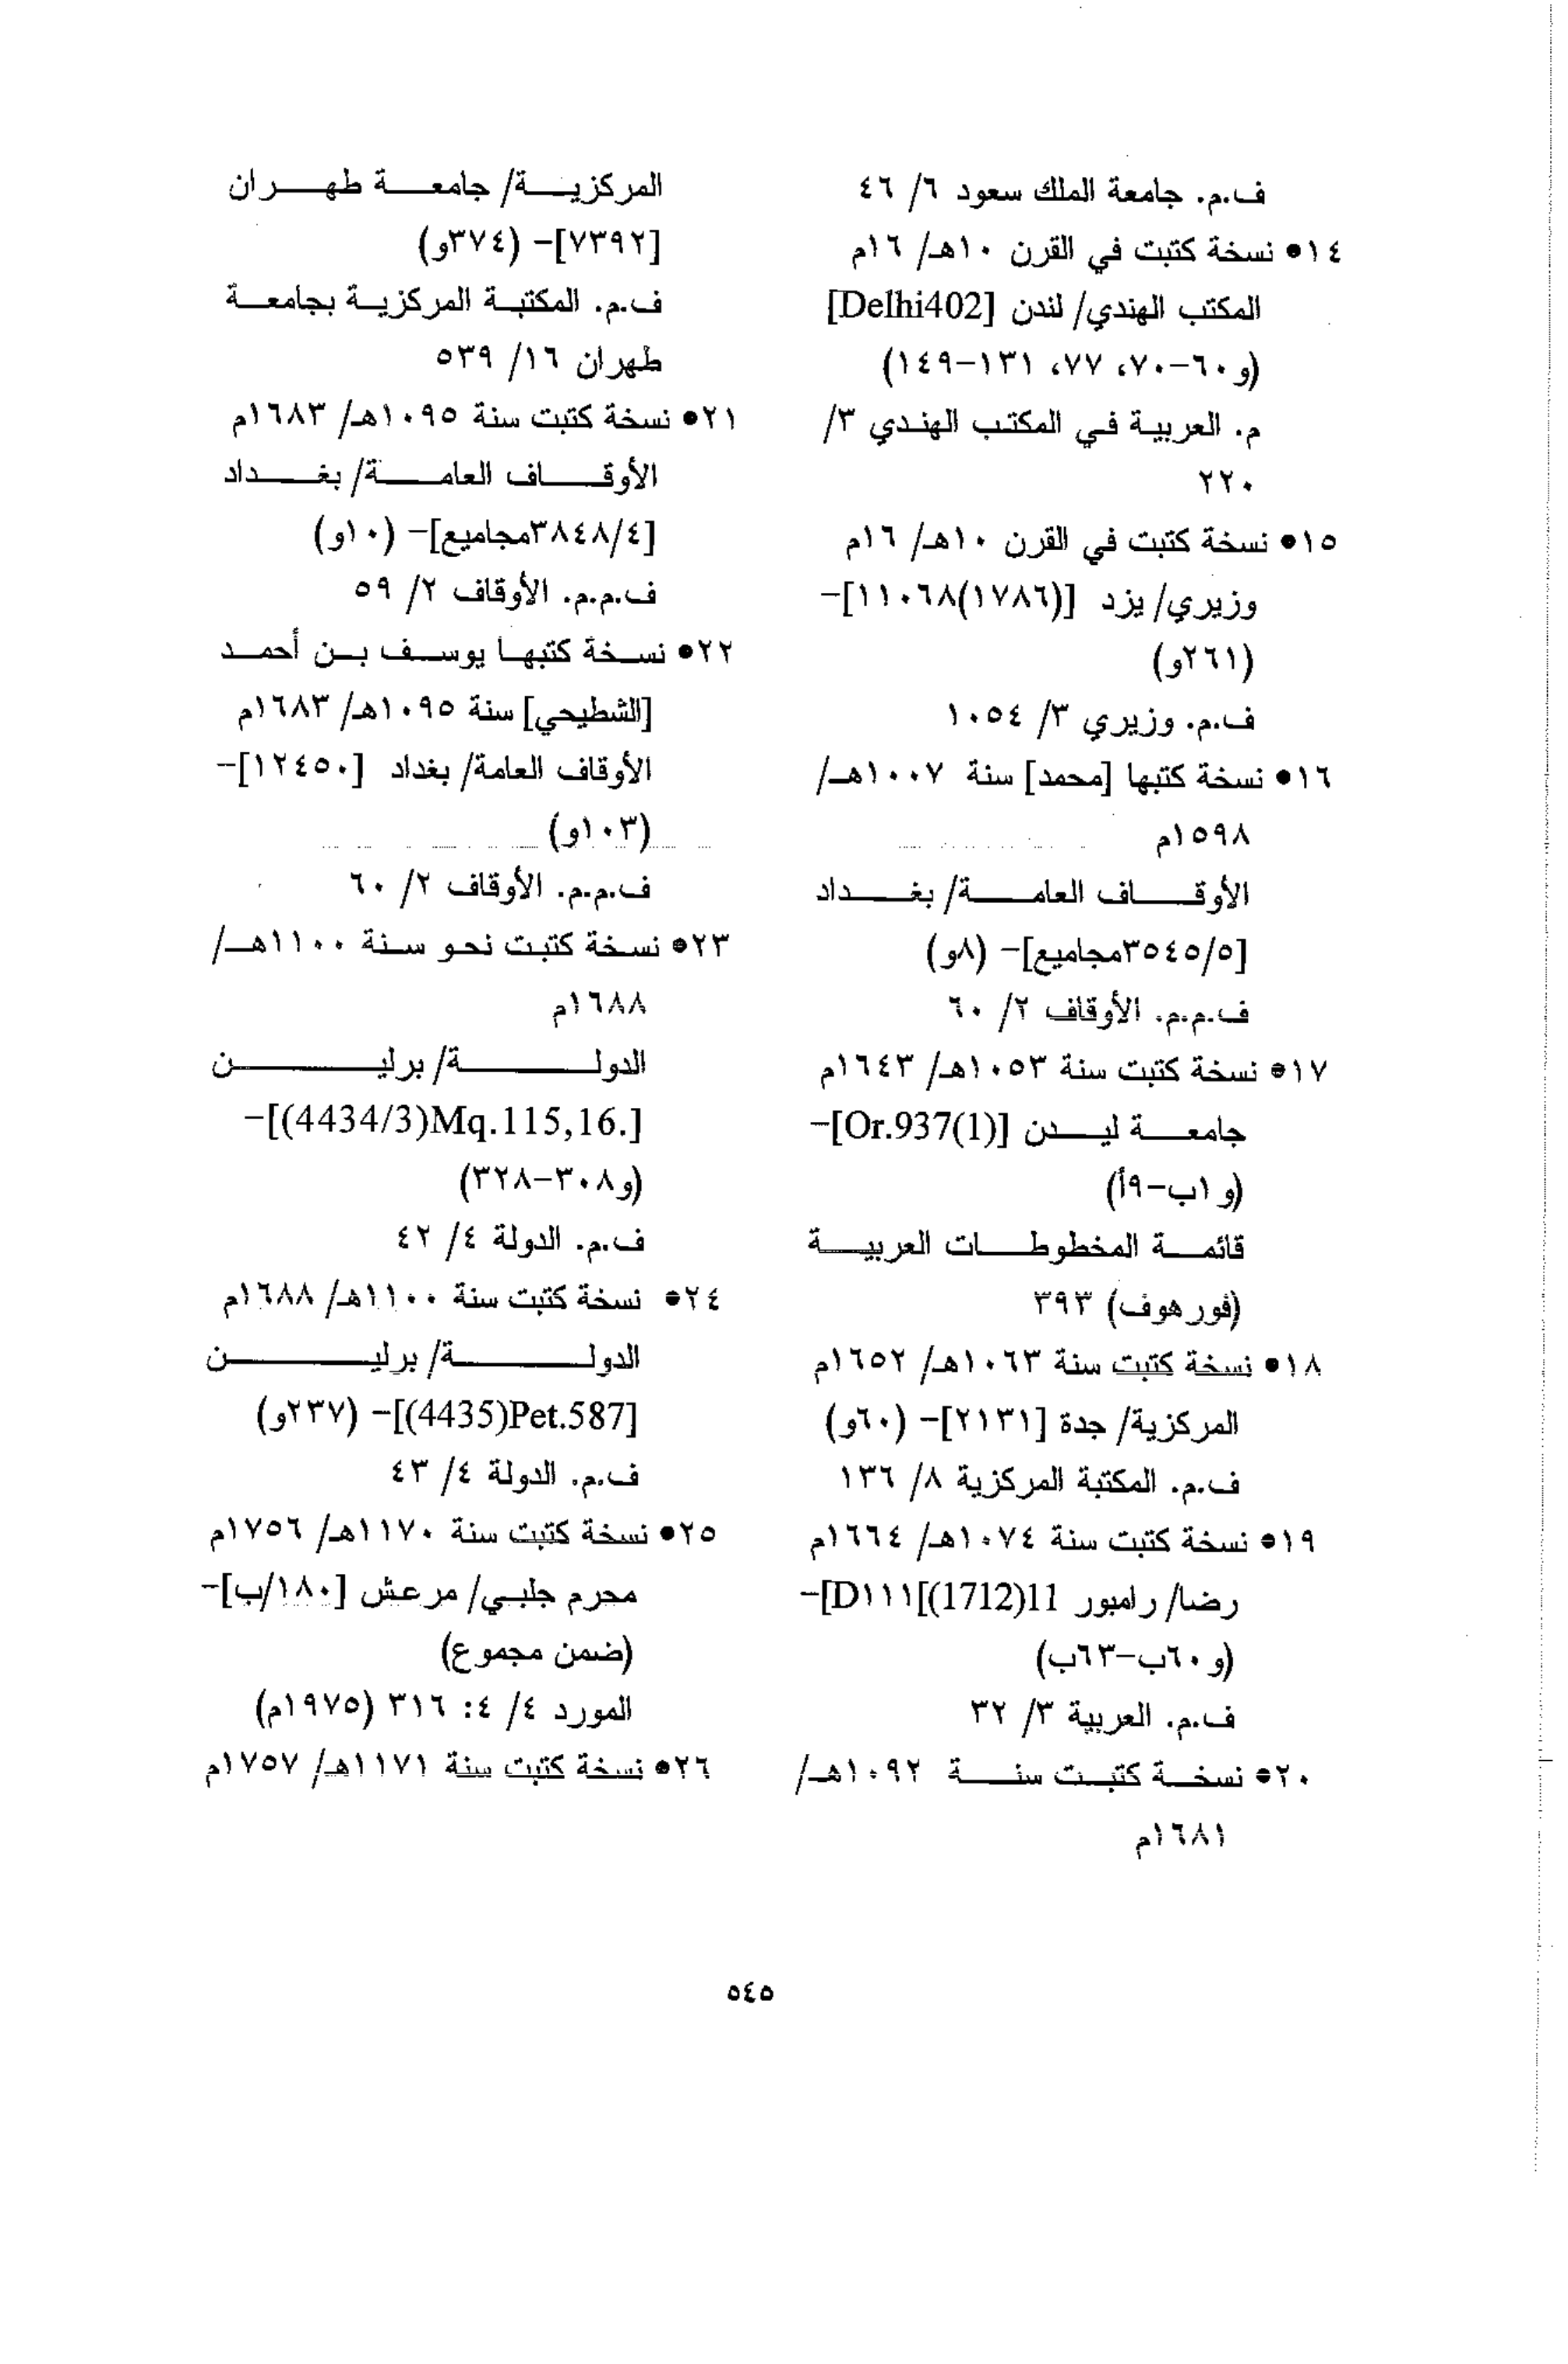 ف.م. جامعة الملك سعود ٦/ ٤٦
١٤● نسخة كتبت في القرن ١٠هـ/ ١٦م
المكتب الهندي/ لندن [Delhi402]
(و٦٠-٧٠، ٧٧، ١٣١-١٤٩)
م. العربية في المكتب الهندي ٣/
٢٢٠
١٥● نسخة كتبت في القرن ١٠هـ/ ١٦م
وزيري/ يزد [(١٧٨٦)١١٠٦٨]-
(٢٦١و)
ف.م. وزيري ٣/ ١٠٥٤
١٦● نسخة كتبها [محمد] سنة ١٠٠٧هـ/
١٥٩٨م
الأوقاف العامة/ بغداد
[٣٥٤٥/٥مجاميع]- (٨و)
ف.م.م. الأوقاف ٢/ ٦٠
١٧● نسخة كتبت سنة ١٠٥٣هـ/ ١٦٤٣م
جامعة ليدن [Or.937(1)]-
(و١ب-٩أ)
قائمة المخطوطات العربية
(فورهوف) ٣٩٣
١٨● نسخة كتبت سنة ١٠٦٣هـ/ ١٦٥٢م
المركزية/ جدة [٢١٣١]- (٦٠و)
ف.م. المكتبة المركزية ٨/ ١٣٦
١٩● نسخة كتبت سنة ١٠٧٤هـ/ ١٦٦٤م
رضا/ رامبور 11(1712)[D١١١]-
(و٦٠ب-٦٣ب)
ف.م. العربية ٣/ ٣٢
٢٠● نسخة كتبت سنة ١٠٩٢هـ/
١٦٨١م
المركزية/ جامعة طهران
[٧٣٩٢]- (٣٧٤و)
ف.م. المكتبة المركزية بجامعة
طهران ١٦/ ٥٣٩
٢١● نسخة كتبت سنة ١٠٩٥هـ/ ١٦٨٣م
الأوقاف العامة/ بغداد
[٣٨٤٨/٤مجاميع]- (١٠و)
ف.م.م. الأوقاف ٢/ ٥٩
٢٢● نسخة كتبها يوسف بن أحمد
[الشطيحي] سنة ١٠٩٥هـ/ ١٦٨٣م
الأوقاف العامة/ بغداد [١٢٤٥٠]-
(١٠٣و)
ف.م.م. الأوقاف ٢/ ٦٠
٢٣● نسخة كتبت نحو سنة ١١٠٠هـ/
١٦٨٨م
الدولة/ برلين
[(4434/3)Mq.115,16.]-
(و٣٠٨-٣٢٨)
ف.م. الدولة ٤/ ٤٢
٢٤● نسخة كتبت سنة ١١٠٠هـ/ ١٦٨٨م
الدولة/ برلين
[(4435)Pet.587]- (٢٣٧و)
ف.م. الدولة ٤/ ٤٣
٢٥● نسخة كتبت سنة ١١٧٠هـ/ ١٧٥٦م
محرم جلبي/ مرعش [١٨٠/ب]-
(ضمن مجموع)
المورد ٤/ ٤: ٣١٦ (١٩٧٥م)
٢٦● نسخة كتبت سنة ١١٧١هـ/ ١٧٥٧م
٥٤٥